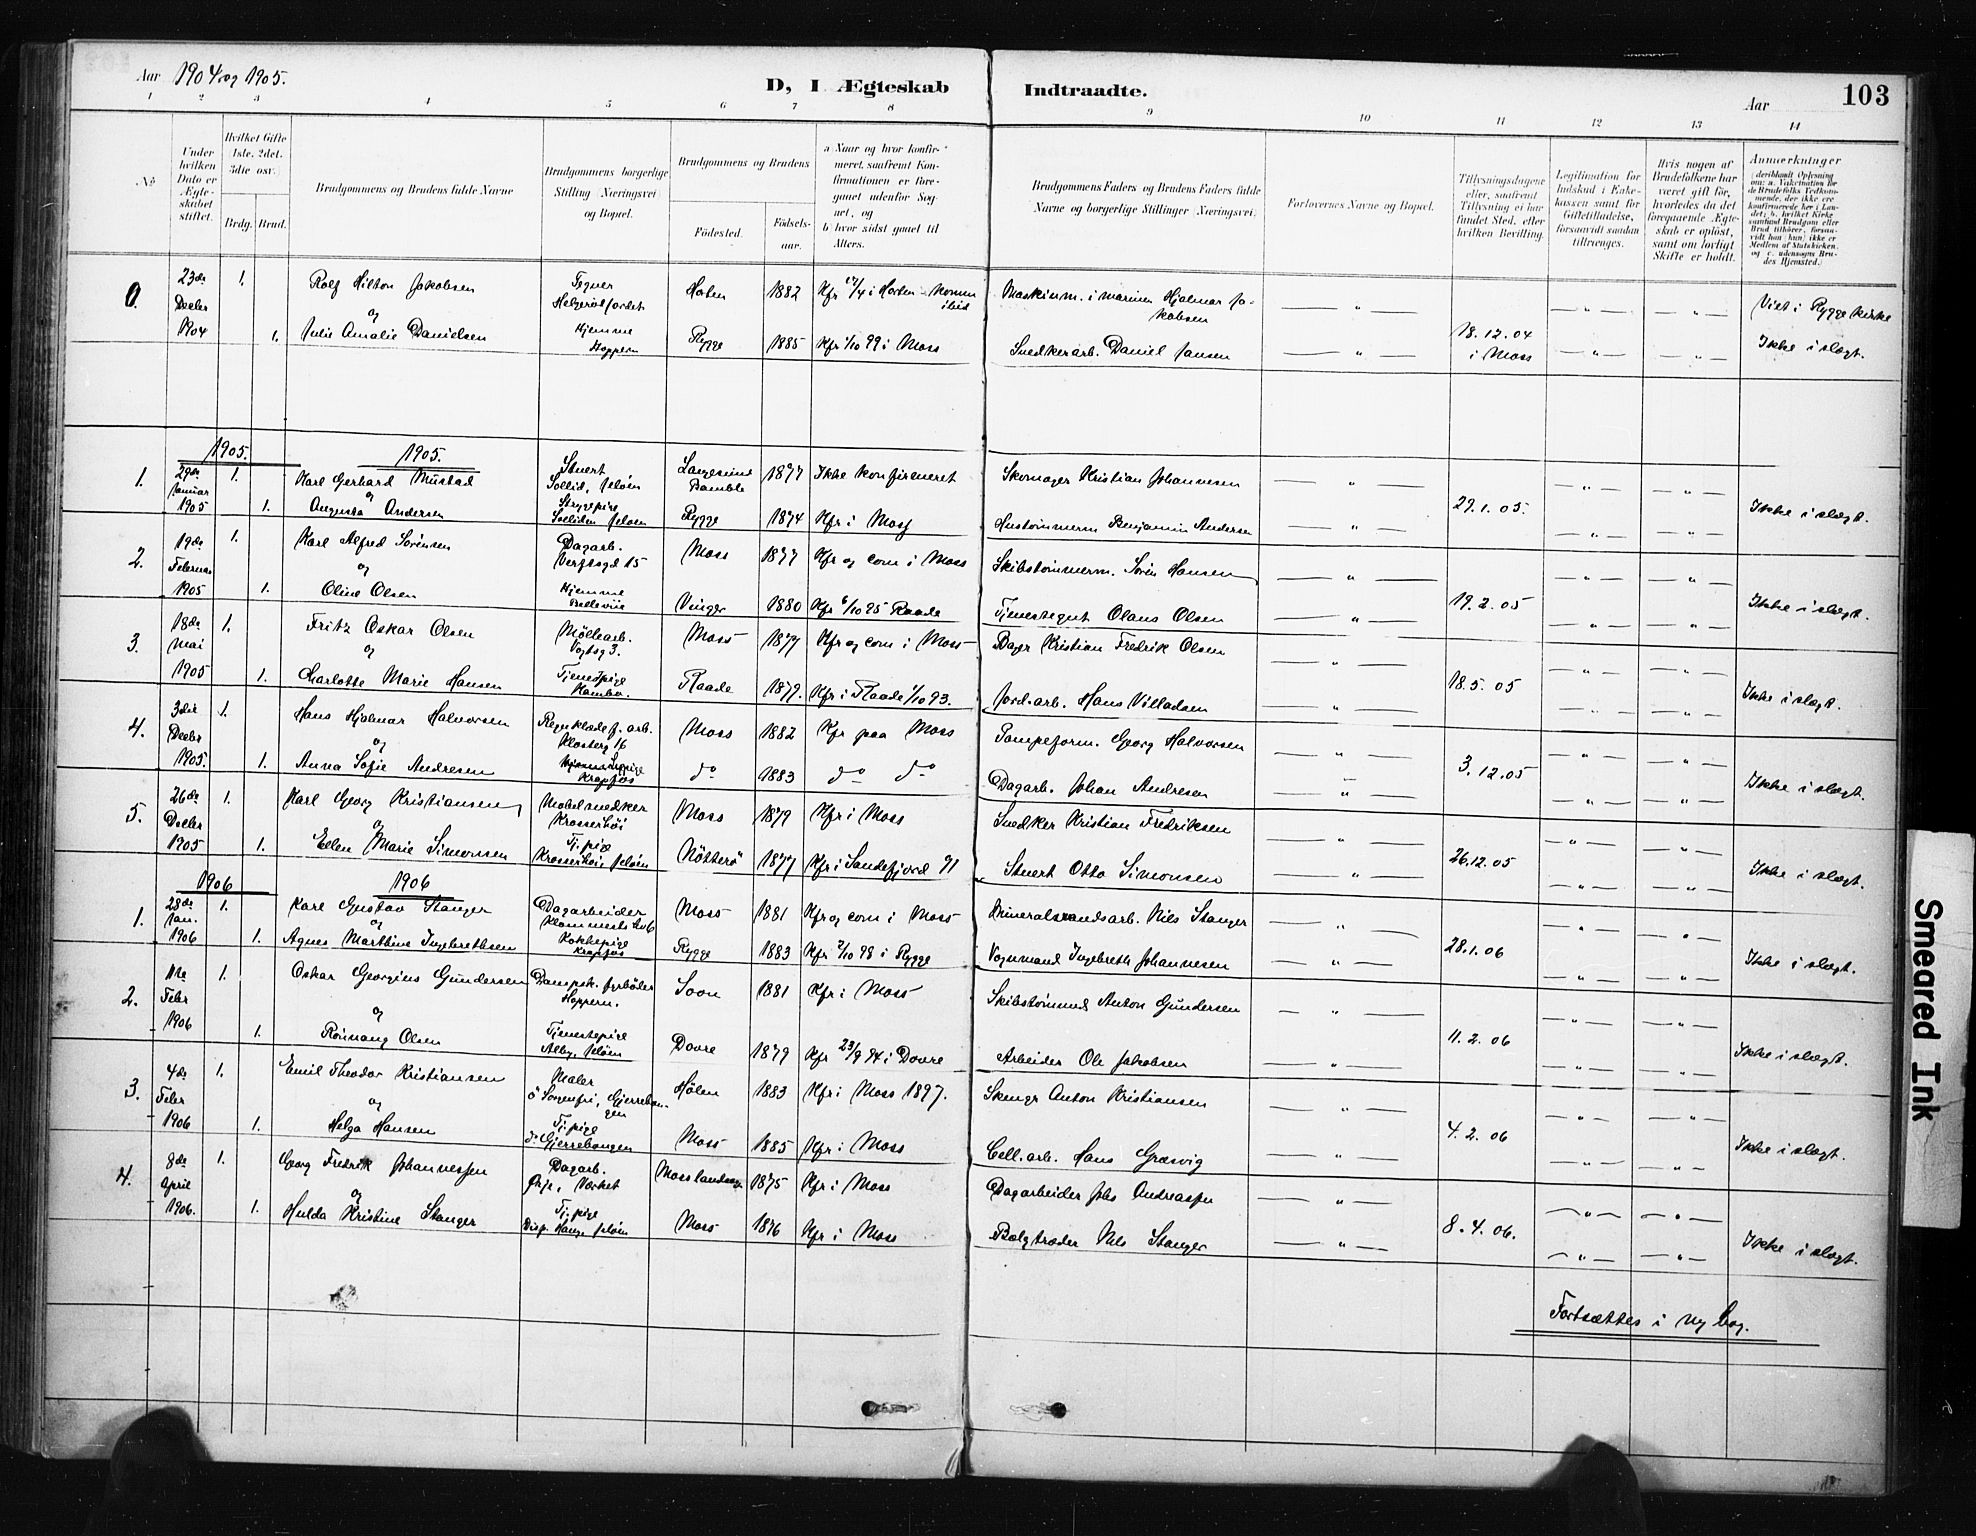 Aar 1904 og 1905.
D, I Ægteskab Indtraadte.
Aar
103
1 2 3 4 5 6 7 8 9 10 11 12 13 14
No
Under hvilken Dato er Ægteskabet stiftet.
Hvilket Gifte 1ste, 2det, 3die osv.
Brdg. Brud.
Brudgommens og Brudens fulde Navne
Brudgommens borgerlige Stilling (Næringsvei) og Bopæl.
Brudgommens og Brudens
Fødested.
Fødselsaar.
a Naar og hvor konfirmeret, saafremt Konfirmationen er foregaaet udenfor Sognet, og
b hvor sidst gaaet til Alters.
Brudgommens Faders og Brudens Faders fulde Navne og borgerlige Stillinger (Næringsvei)
Forlovernes Navne og Bopæl.
Tillysningsdagene eller, saafremt Tillysning ei har fundet Sted, efter hvilken Bevilling.
Legitimation for Indskud i Enkekassen samt for Giftetilladelse, forsaavidt saadan tiltrænges.
Hvis nogen af Brudefolkene har været gift før, hvorledes da det foregaaende Ægteskab er opløst, samt om lovligt Skifte er holdt.
Anmerkninger (deriblandt Oplysning om: a. Vakcination for de Brudefolks Vedkommende, der ikke ere konfirmerede her i Landet; b. hvilket Kirkesamfund Brudgom eller Brud tilhører, forsaavidt han (hun) ikke er Medlem af Statskirken, og c. udensogns Brudes Hjemsted.)
0. 23de Decbr 1904 1. Rolf Hilton Jakobsen Horten 1882 Kfr i Horten Maskinm. i marinen Hjalmar Jakobsen Viet i Rygge kirke
og
1. Julie Amalie Danielsen Hjemme Hoppern Rygge 1885 Kfr 1/10 99 i Moss Snedkerarb. Daniel Jansen 18.12.04 i Moss Ikke i slægt.
1905. 1905.
1. 29de Januar 1905 1. Karl Gerhard Mustad Stuert Solli, Jeløen Langesund Bamble 1877 Ikke konfirmeret Skomager Kristian Johannesen
og
1. Augusta Andersen Strygepige Jeløen Rygge 1874 Kfr i Moss Hustømmerm Benjamin Andersen 29.1.05. Ikke i slægt.
2. 19de Februar 1905 1. Karl Alfred Sørensen Dagarb. 15 Moss 1877 Kfr og com i Moss Skibstømmerm. Sören Hansen
og
1. Oline Olsen Hjemme Bellevue Vinger 1880 Kfr 6/10 95 Raade Tjenestegut Olaus Olsen 19.2.05 Ikke i slægt.
3. 18de Mai 1905 1. Fritz Oskar Olsen Møllearb. Vogtsg 3. Moss 1877 Kfr og com i Moss Dagar Kristian Fredrik Olsen
og
1. Charlotte Marie Hansen Tjenestpige Kambo. Raade 1879. Kfr i Raade 1/10 93. Jord.arb. Hans Villadsen 18.5.05 Ikke i slægt.
4. 3die Decbr 1905. 1. Hans Hjalmar Halvorsen Regnklædef. arb. Klosterg 16 Moss 1882 Kfr paa Moss Georg Halvorsen
og
1. Anna Sofie Andresen Krapfos do 1883 do do Dagarb. Johan Andresen 3.12.05 Ikke i slægt.
5. 26de Decbr 1905 1. Karl Georg Kristiansen Møbelsnedker Krosserhöi Moss 1879 Kfr i Moss Snedker Kristian Fredriksen
og
1. Ellen Marie Simonsen Tj. pige Krosserhöi Jeløen Nötterö 1877 Kfr i Sandefjord 91 Stuert Otto Simonsen 26.12.05 Ikke i slægt.
1906 1906
1. 28de Jan. 1906 1. Karl Gustav Stanger Dagarbeider Moss 1881 Kfr og com i Moss Mineralvandsarb. Nils Stanger
og
1. Agnes Marthine Ingebrethsen Kokkepige Krapfos Rygge 1883 Kfr 2/10 98 i Rygge Vognmand Ingebreth Johannesen 28.1.06 Ikke i slægt.
2. 11te Febr 1906 1. Oskar Georgius Gundersen Dampsk. fyrböder Hoppern. Soon 1881 Kfr i Moss Skibstømmd Anton Gundersen
og
1. Rönnaug Olsen Tjenestepige Alby, Jeløen Dovre 1879 Kfr 23/9 94 i Dovre Arbeider Ole Jakobsen 11.2.06 Ikke i slægt.
3. 4de Febr 1906 1. Emil Theodor Kristiansen Maler ö Sorgenfri, Gjerrebougen Hölen 1883 Kfr i Moss 1897. Anton Kristiansen
og
1. Helga Hansen Tj. pige Gjerrebougen Moss 1885 Kfr i Moss Cell.arb. Hans Græsvig 4.2.06 Ikke i slægt.
4. 8de April 1906. 1. Georg Fredrik Johannessen Dagarb. Værket Moss landsogn 1875 Kfr i Moss Dagarbeider Johs Andreassen
og
1. Hulda Kristine Stanger Tj. pige Jeløen Moss 1876 Kfr i Moss Bælgtræder Nils Stanger 8.4.06. Ikke i slægt.
Fortsættes i ny bog.
Smeared Ink